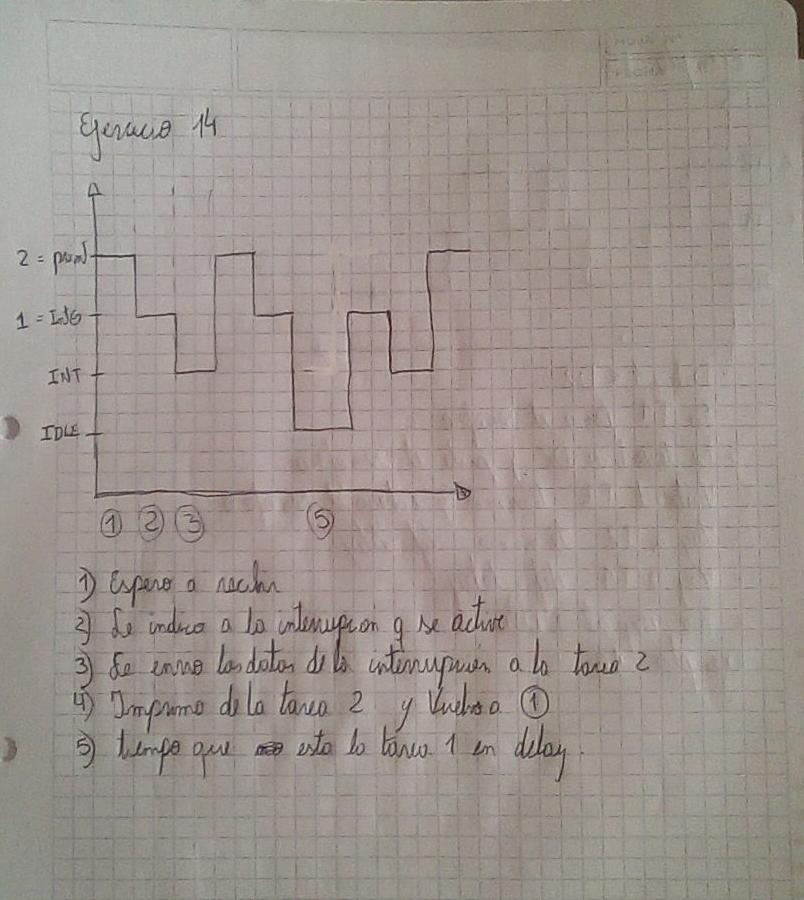 Ejercicio 14
2 = print
1 = InTG
INT
IDLE
① ② ③ ⑤
1) Espero a recibir
2) Le indico a la interrupcion q se active
3) Se envio los datos de la interrupción a la tarea 2
4) Imprimo de la tarea 2 y Vuelvo a ①
5) tiempo que esta la tarea 1 en delay.